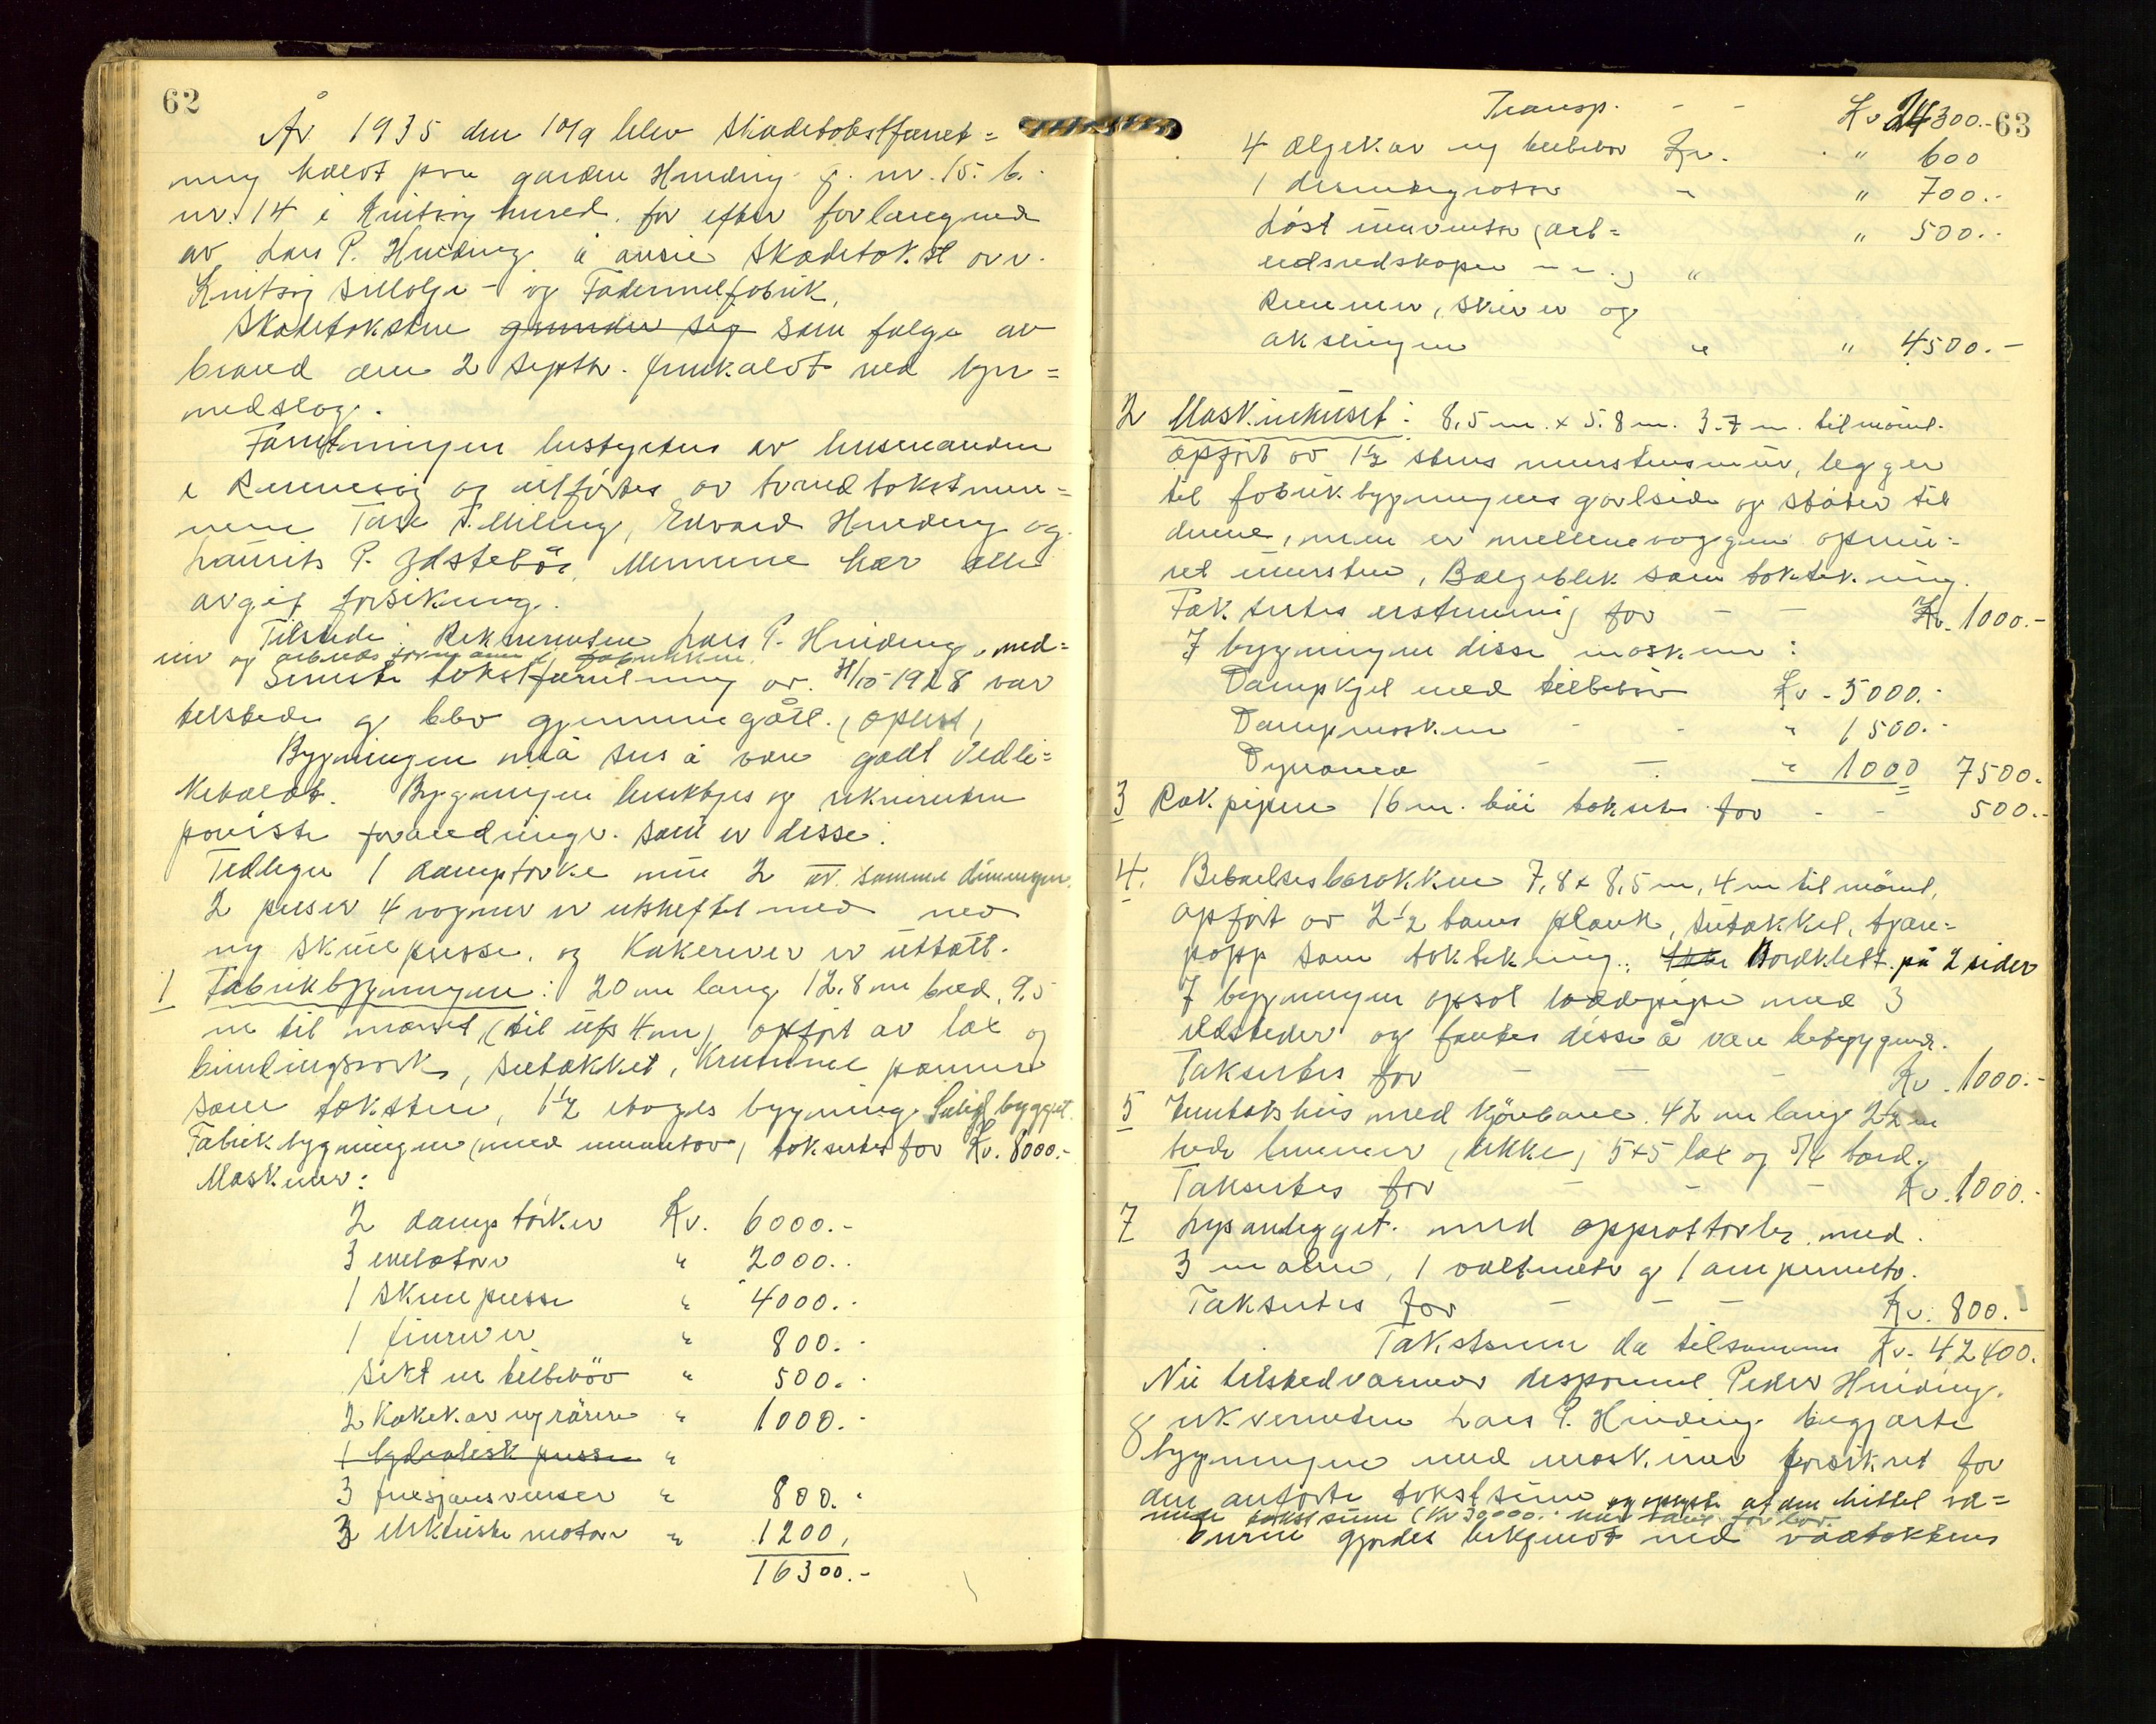 62
År 1935 den 10/9 blev skadetakstforret=
ning holdt paa garden Hunding g. nr. 15. b.
nr. 14 i Kvitsøy hered. for efter forlangende
av Lars P. Hunding å ansie Skadetakst over
Kvitsøy Sillolje- og Fodermelfabrik.
Skadetaksten grunder sig som følge av
brand den 2 septbr. fremkaldt ved lyn=
nedslag.
Forretningen bestyrtes av lensmanden
i Rennesøy og utførtes av brandtakstmen=
nene Tore T. Meling, Edvard Hunding og
Laurits P. Ydstebø. Mennene har alle
avgit forsikring.
Tilstede: Rekvirenten Lars P. Hunding, med=
eier og arbeids formann i fabrikken.
Seneste takstforretning av 4/10-1928 var
tilstede og blev gjennemgått. (oplest)
Bygningen må sies å være godt vedli=
keholdt. Bygningen besiktiges og rekvirenten
paaviste forandringer som er disse:
Tidligere 1 damptørke nu 2 av samme dimensjon.
2 presser 4 vogner er utskiftet med med
ny skrue presse, og Kakeriver er uttatt.
1 Fabrikbygningen: 20 m lang 12,8 m bred, 9,5
m til mønet (til ufs 4 m) opført av lax og
bindingsverk, sutakket, Krumme panner
som taksten, 1½ etages bygning. Solid bygget.
Fabrikbygningen (med inventar) taksertes for Kr. 8000.-
Maskiner:
2 damptörker Kr. 6000.-
3 elevatorer " 2000.-
1 Skruepresse " 4000.-
1 finriver " 800.-
Sikt m tilbehör " 500.-
2 Kokekar og rörere " 1000.-
1 hydralisk presse "
3 " 800.-
3 elektriske motorer " 1200,
16300.-
63
Transp. - - Kr 24300.-
4 oljekar og tilbehör Kr. " 600
1 desintegrator " " 700.-
Löst inventar (arb= " 500.-
eidsredskaper m.m.) "
Remmer, skiver og
akslinger " " 4500.-
2 Maskinhuset: 8,5 m. x 5,8 m. 3.7 m. til mönet.
opført av 1½ stens murstensmur, legger
til fabrikbygningens gavlside og støter til
denne, men er mellemveggen opmu=
ret mursten, Bølgeblek som taktekning.
Taksertes erstatning for - - Kr. 1000.-
I bygningen disse maskiner:
Dampkjel med tilbehör Kr. 5000.-
Dampmaskin - - " 1500.-
Dynamo - - " 1000 7500.
3 Røkpipen 16 m. höi takseres for - - 500.-
4. Beboelsesbarakken 7,8 x 8,5 m, 4 m til mönet,
opført av 2½ toms plank, sutakket, tjære=
papp som taktekning. Ikke Bordklett på 2 sider
I bygningen opsat loddepipe med 3
ildsteder og fantes disse å være betryggende.
Taksertes for - - - Kr. 1000.-
5 Inntakshus med Kjörbane. 42 m lang 2½ m
brede lemmer (dekke) 5x5 lax og 5/4 bord.
Taksertes for - - - Kr. 1000.-
7 Lysanlegget med apprattavle, med
3 målere, 1 voltmeter og 1 ampermeter.
Taksertes for - - - Kr. 800.-
Takstsum da tilsammen Kr. 42400.
Nu tilstedværende disponent Peder Hunding
og rekvirenten Lars P. Hunding begjærte
bygningene med maskiner forsikret for
den anførte takstsum og oplyste at den hittel væ=
rende takstsum (Kr 30000.-
gjordes bekjendt med vaatakstens